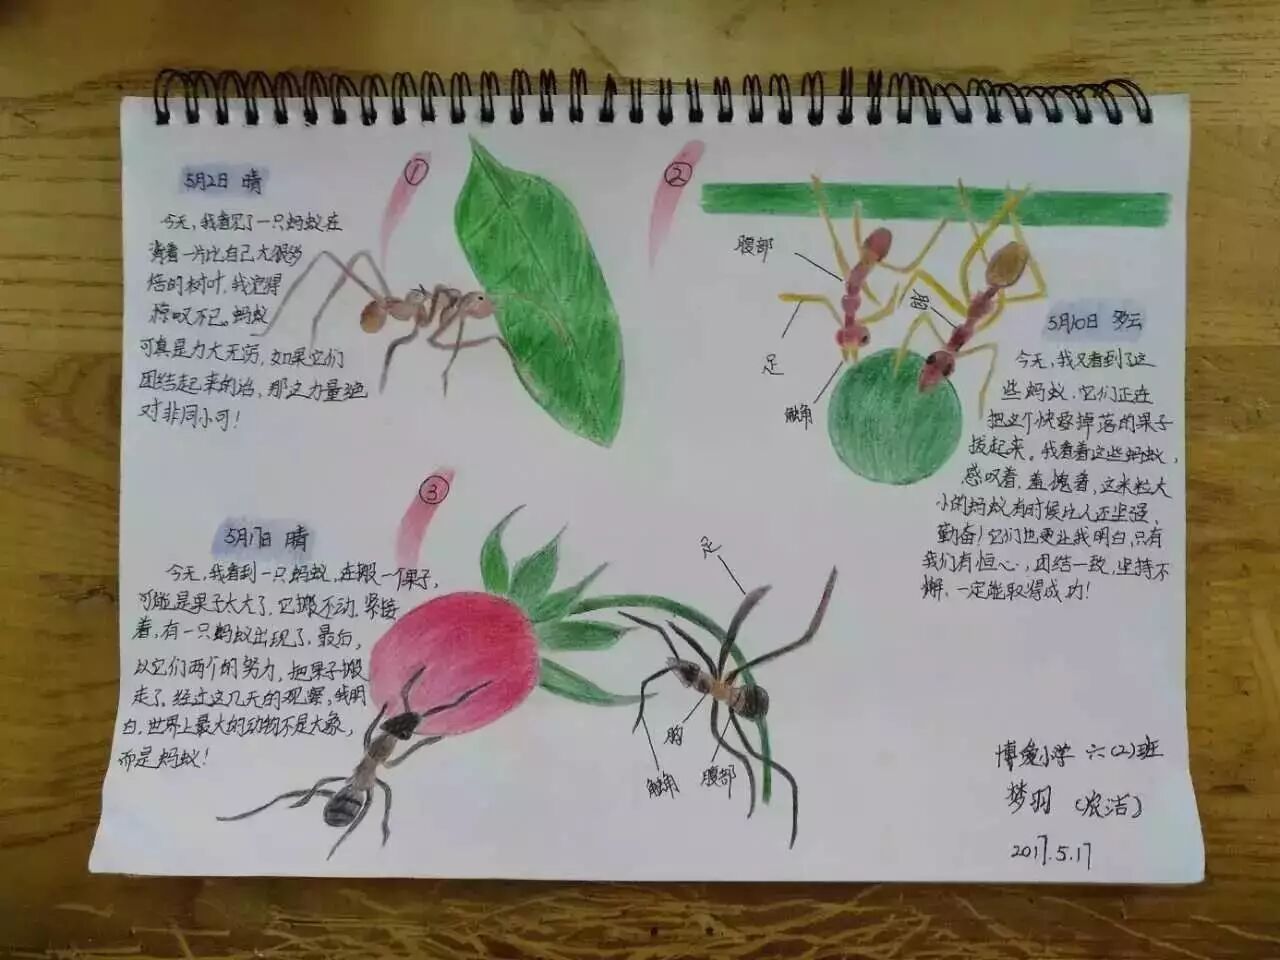 ①
5月2日 晴
今天,我看见了一只蚂蚁在
背着一片比自己大很多
倍的树叶,我觉得
惊叹不已。蚂蚁
可真是力大无穷,如果它们
团结起来的治,那这力量绝
对非同小可!
②
腹部
胸
足
触角
5月10日 多云
今天,我又看到了这
些蚂蚁,它们正在
把这个快要掉落的果子
拔起来。我看着这些蚂蚁,
感叹着,羞愧着,这米粒大
小的蚂蚁有时候比人还坚强、
勤奋!它们也更让我明白,只有
我们有恒心,团结一致,坚持不
懈,一定能取得成功!
③
5月17日 晴
今天,我看到一只蚂蚁,在搬一个果子,
可能是果子太大了,它搬不动,紧接
着,有一只蚂蚁出现了,最后,
以它们两个的努力,把果子搬
走了。经过这几天的观察,我明
白,世界上最大的动物不是大象,
而是蚂蚁!
足
胸
触角
腹部
博爱小学 六(2)班
梦羽 (农洁)
2017.5.17